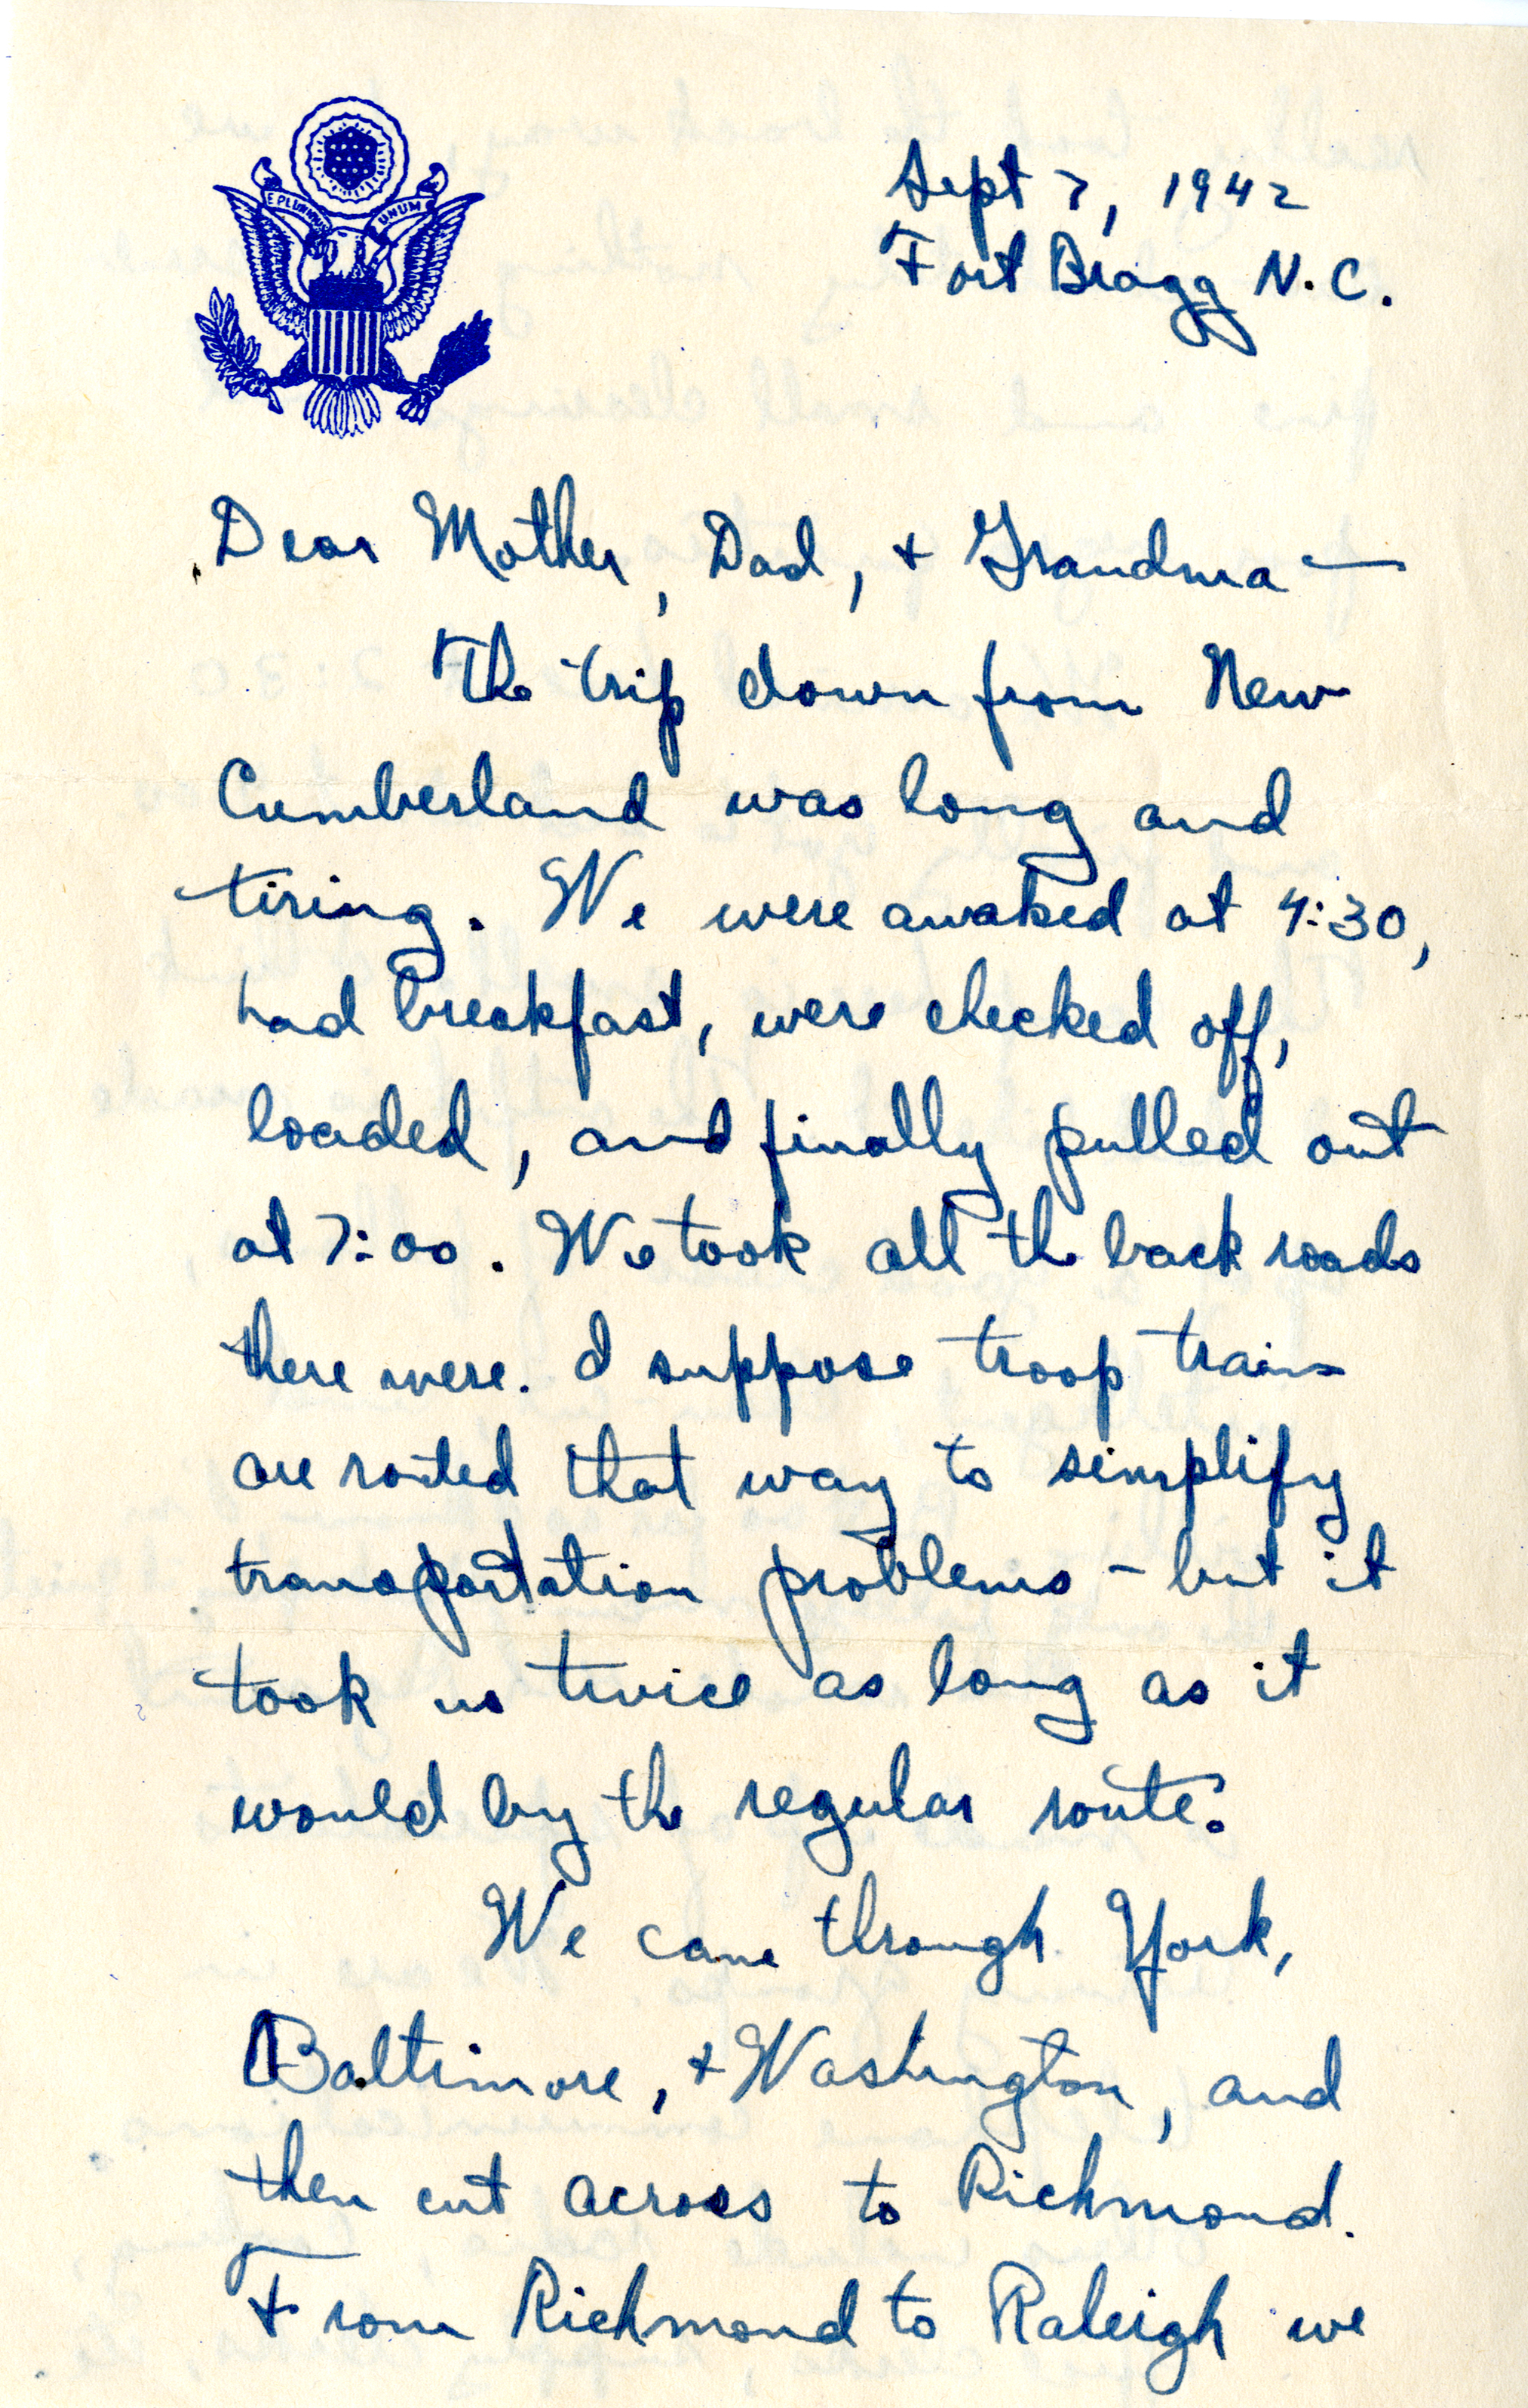 E PLURIBUS UNUM
Sept 7, 1942
Fort Bragg N.C.
Dear Mother, Dad, + Grandma —
The trip down from New
Cumberland was long and
tiring. We were awaked at 4:30,
had breakfast, were checked off,
loaded, and finally pulled out
at 7:00. We took all the back roads
there were. I suppose troop trains
are routed that way to simplify
transportation problems - but it
took us twice as long as it
would by the regular route.
We came through York,
Baltimore, + Washington, and
then cut across to Richmond.
From Richmond to Raleigh we